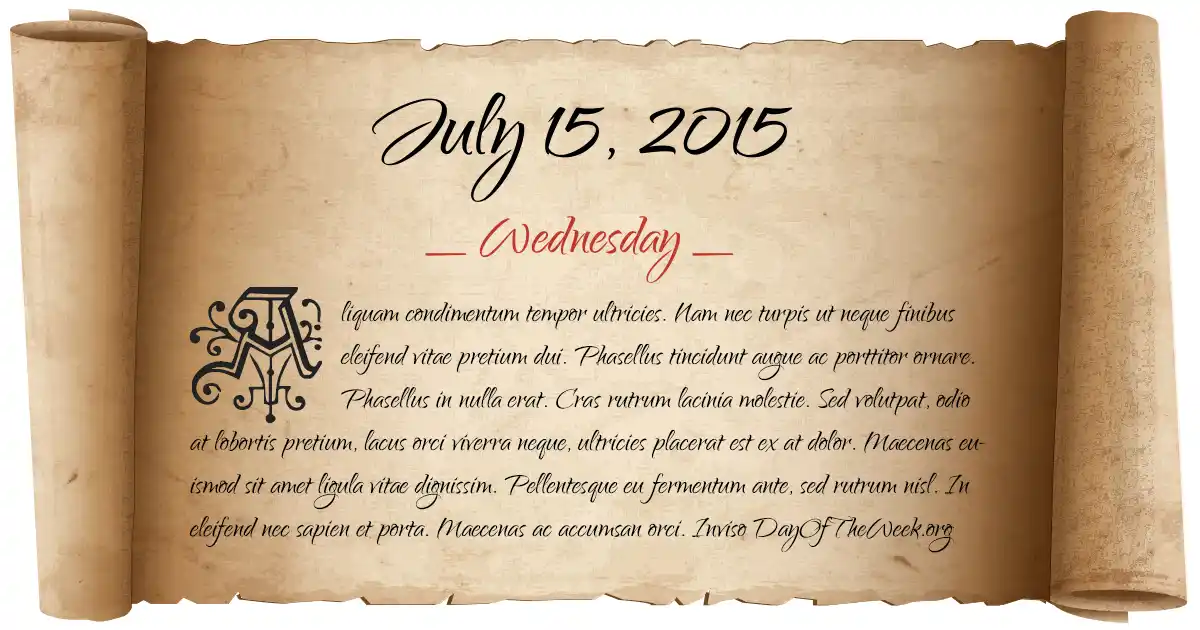 July 15, 2015
Wednesday
Aliquam condimentum tempor ultricies. Nam nec turpis ut neque finibus
eleifend vitae pretium dui. Phasellus tincidunt augue ac porttitor ornare.
Phasellus in nulla erat. Cras rutrum lacinia molestie. Sed volutpat, odio
at lobortis pretium, lacus orci viverra neque, ultricies placerat est ex at dolor. Maecenas eu-
ismod sit amet ligula vitae dignissim. Pellentesque eu fermentum ante, sed rutrum nisl. In
eleifend nec sapien et porta. Maecenas ac accumsan orci. Inviso DayOfTheWeek.org